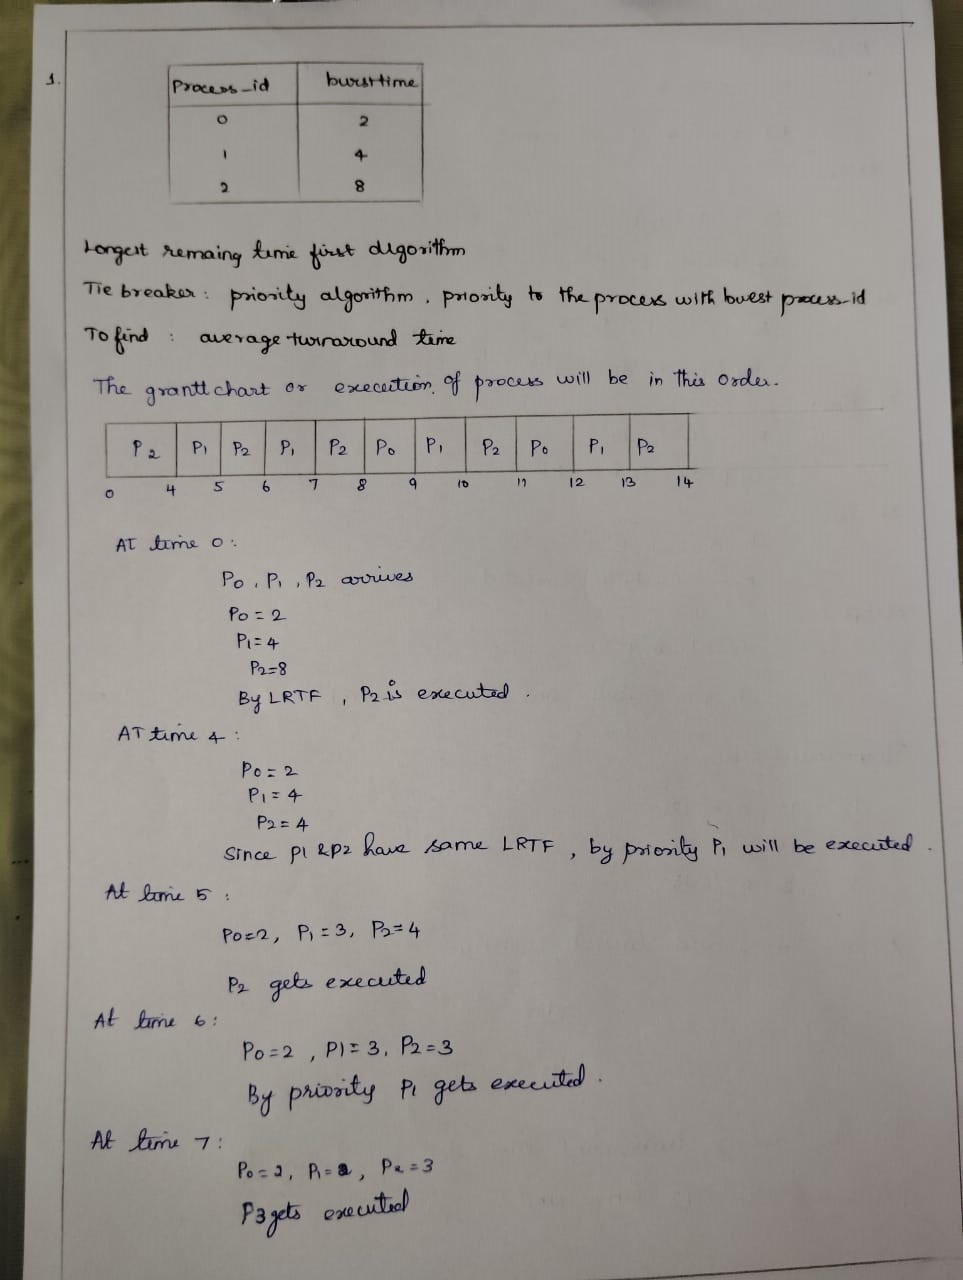 1.
Process_id bursttime
0 2
1 4
2 8
Longest remaing time first algorithm
Tie breaker : priority algorithm , priority to the process with lowest process-id
To find : average turnaround time
The grantt chart or execution of process will be in this order.
P2 P1 P2 P1 P2 P0 P1 P2 P0 P1 P2
0 4 5 6 7 8 9 10 11 12 13 14
AT time 0 :
P0 , P1 , P2 arrives
P0 = 2
P1 = 4
P2=8
By LRTF , P2 is executed .
AT time 4 :
P0 = 2
P1 = 4
P2 = 4
Since P1 & P2 have same LRTF , by priority P1 will be executed .
At time 5 :
P0=2, P1 = 3, P2=4
P2 gets executed
At time 6 :
P0 = 2 , P1 = 3, P2 = 3
By priority P1 gets executed .
At time 7 :
P0 = 2, P1 = 2, P2 = 3
P3 gets executed